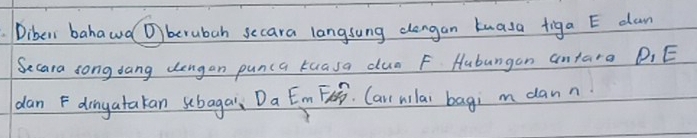 Diberi bahawa D berubah secara langsung dengan kuasa tiga E dan
Secara songsang dengan punca kuasa dua F. Hubungan antara D, E
dan F dinyatakan sebagai D α Em Fn. Cari nilai bagi m dan n.